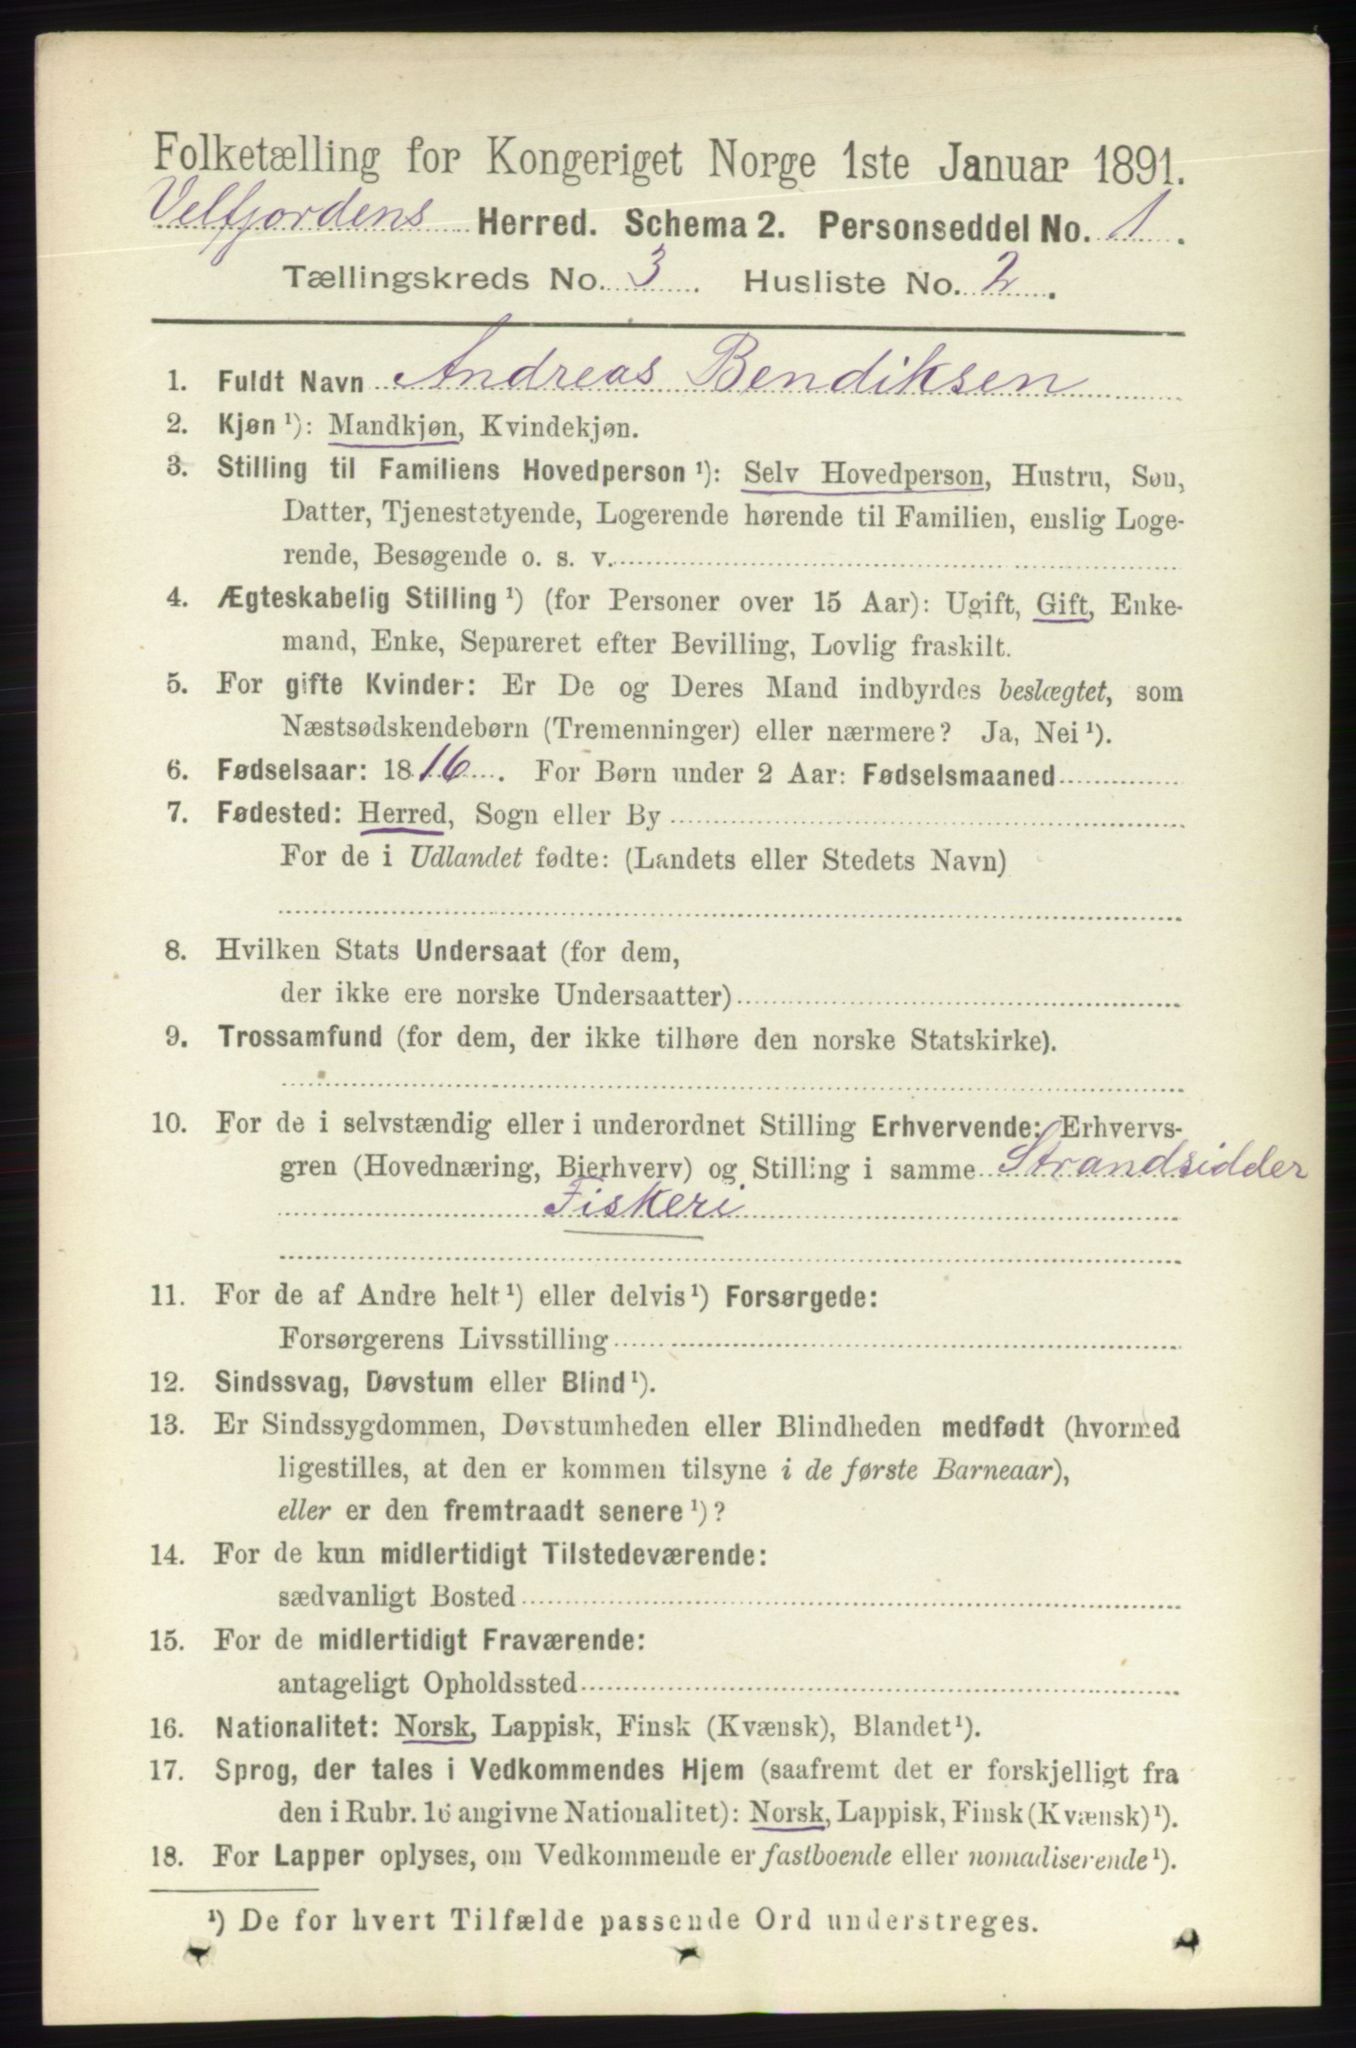 Folketælling for Kongeriget Norge 1ste Januar 1891.
Velfjordens Herred. Schema 2. Personseddel No. 1.
Tællingskreds No. 3. Husliste No. 2.
1. Fuldt Navn Andreas Bendiksen
2. Kjøn ¹): Mandkjøn, Kvindekjøn.
3. Stilling til Familiens Hovedperson ¹): Selv Hovedperson, Hustru, Søn,
Datter, Tjenestetyende, Logerende hørende til Familien, enslig Loge-
rende, Besøgende o. s. v.
4. Ægteskabelig Stilling ¹) (for Personer over 15 Aar): Ugift, Gift, Enke-
mand, Enke, Separeret efter Bevilling, Lovlig fraskilt.
5. For gifte Kvinder: Er De og Deres Mand indbyrdes beslægtet, som
Næstsødskendebørn (Tremenninger) eller nærmere? Ja, Nei ¹).
6. Fødselsaar: 1816. For Børn under 2 Aar: Fødselsmaaned
7. Fødested: Herred, Sogn eller By
For de i Udlandet fødte: (Landets eller Stedets Navn)
8. Hvilken Stats Undersaat (for dem,
der ikke ere norske Undersaatter)
9. Trossamfund (for dem, der ikke tilhøre den norske Statskirke).
10. For de i selvstændig eller i underordnet Stilling Erhvervende: Erhvervs-
gren (Hovednæring, Bierhverv) og Stilling i samme Strandsidder
Fiskeri
11. For de af Andre helt ¹) eller delvis ¹) Forsørgede:
Forsørgerens Livsstilling
12. Sindssvag, Døvstum eller Blind ¹).
13. Er Sindssygdommen, Døvstumheden eller Blindheden medfødt (hvormed
ligestilles, at den er kommen tilsyne i de første Barneaar),
eller er den fremtraadt senere ¹)?
14. For de kun midlertidigt Tilstedeværende:
sædvanligt Bosted
15. For de midlertidigt Fraværende:
antageligt Opholdssted
16. Nationalitet: Norsk, Lappisk, Finsk (Kvænsk), Blandet ¹).
17. Sprog, der tales i Vedkommendes Hjem (saafremt det er forskjelligt fra
den i Rubr. 16 angivne Nationalitet): Norsk, Lappisk, Finsk (Kvænsk) ¹).
18. For Lapper oplyses, om Vedkommende er fastboende eller nomadiserende ¹).
¹) De for hvert Tilfælde passende Ord understreges.